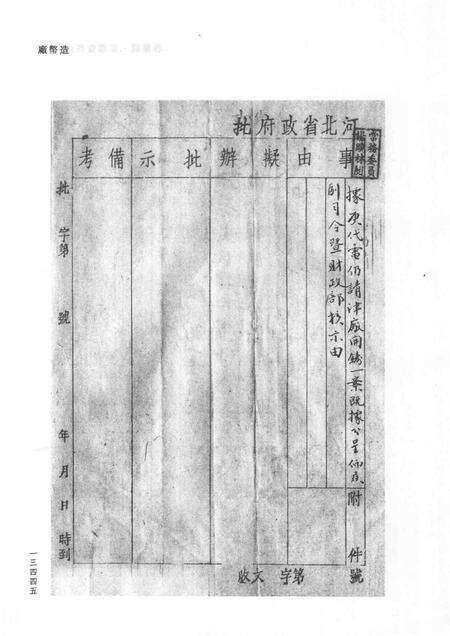 造幣廠
河北省政府批
事由
擬辦
批示
備考
據庚代電仍請津廠開鑄一案既據分呈仰候
副司令暨財政部核示由
附件號
批 字第 號 年 月 日 時到
收文 字第 號
一三四四五